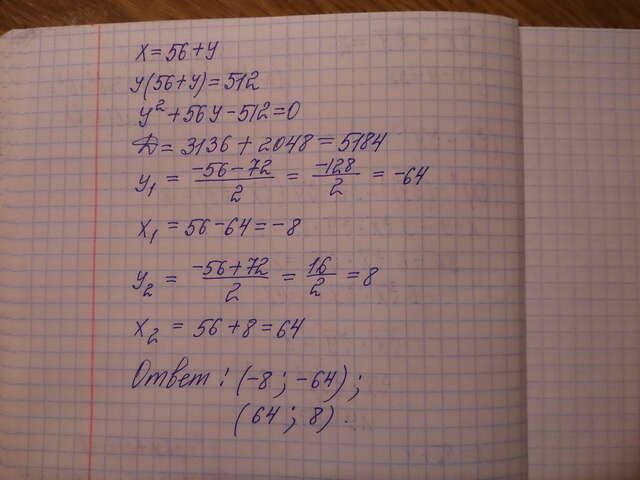 x = 56 + y
y(56+y) = 512
y² + 56y - 512 = 0
D = 3136 + 2048 = 5184
y₁ = (-56-72)/2 = -128/2 = -64
x₁ = 56 - 64 = -8
y₂ = (-56+72)/2 = 16/2 = 8
x₂ = 56 + 8 = 64
Ответ: (-8; -64);
(64; 8).